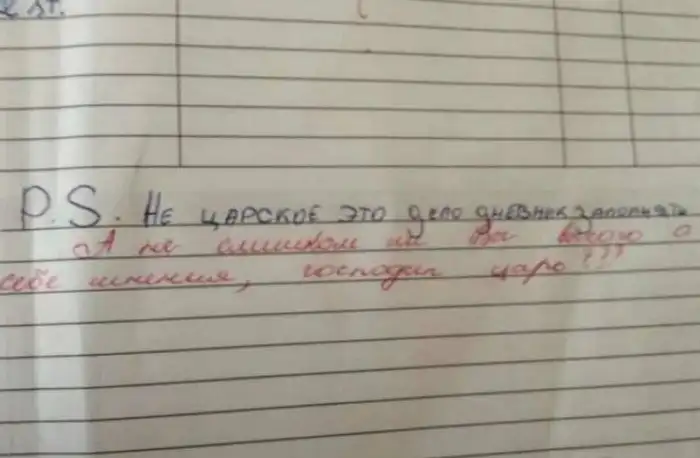 P.S. НЕ ЦАРСКОЕ ЭТО дело дневник заполнять
А не слишком ли Вы много о
себе мнения, господин царь!!!